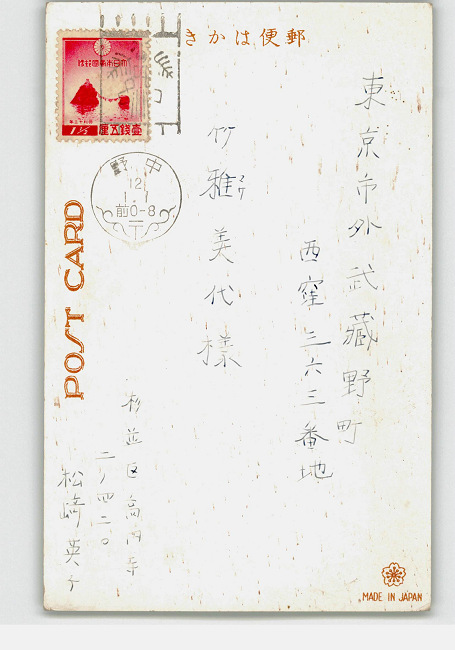 郵便はかき
東京市外武蔵野町
西窪三六三番地
竹雅美代様
杉並区高円寺
二ノ四二〇
松崎英子
大日本帝國郵便
壹錢五厘
1½
中野
12
1.1
前0-8
POST CARD
MADE IN JAPAN